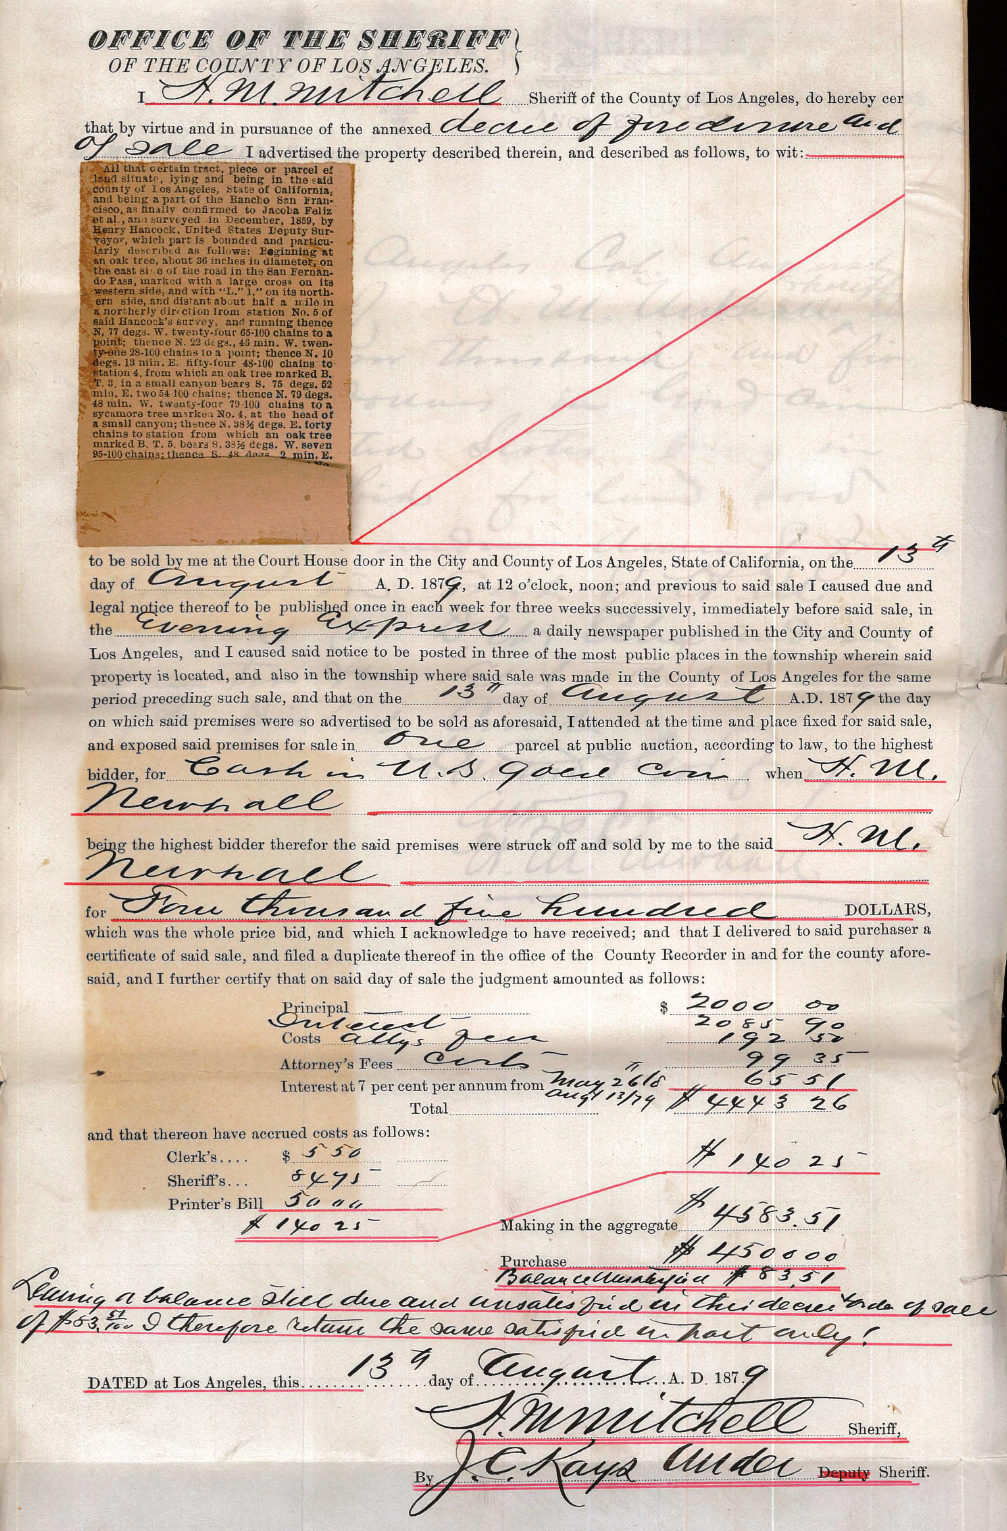 OFFICE OF THE SHERIFF
OF THE COUNTY OF LOS ANGELES.
I H. M. Mitchell Sheriff of the County of Los Angeles, do hereby cer
that by virtue and in pursuance of the annexed decree of foreclosure and
of sale I advertised the property described therein, and described as follows, to wit:
All that certain tract, piece or parcel of
land situate, lying and being in the said
county of Los Angeles, State of California,
and being a part of the Rancho San Fran-
cisco, as finally confirmed to Jacoba Feliz
et al., and surveyed in December, 1859, by
Henry Hancock, United States Deputy Sur-
veyor, which part is bounded and particu-
larly described as follows: Beginning at
an oak tree, about 36 inches in diameter, on
the east side of the road in the San Fernan-
do Pass, marked with a large cross on its
western side, and with "L." 1," on its north-
ern side, and distant about half a mile in
a northerly direction from station No. 5 of
said Hancock's survey, and running thence
N. 77 degs. W. twenty-four 65-100 chains to a
point; thence N. 22 degs., 46 min. W. twen-
ty-one 28-100 chains to a point; thence N. 10
degs. 13 min. E. fifty-four 48-100 chains to
station 4, from which an oak tree marked B.
T. 3, in a small canyon bears S. 75 degs. 52
min. E. two 54 100 chains; thence N. 79 degs.
48 min. W. twenty-four 79-100 chains to a
sycamore tree marked No. 4, at the head of
a small canyon; thence N. 38½ degs. E. forty
chains to station from which an oak tree
marked B. T. 5, bears S. 38½ degs. W. seven
95-100 chains; thence S. 48 degs. 2 min. E.
to be sold by me at the Court House door in the City and County of Los Angeles, State of California, on the 13th
day of August A. D. 1879, at 12 o'clock, noon; and previous to said sale I caused due and
legal notice thereof to be published once in each week for three weeks successively, immediately before said sale, in
the Evening Express a daily newspaper published in the City and County of
Los Angeles, and I caused said notice to be posted in three of the most public places in the township wherein said
property is located, and also in the township where said sale was made in the County of Los Angeles for the same
period preceding such sale, and that on the 13th day of August A.D. 1879 the day
on which said premises were so advertised to be sold as aforesaid, I attended at the time and place fixed for said sale,
and exposed said premises for sale in One parcel at public auction, according to law, to the highest
bidder, for Cash in U.S. gold coin when H. M.
Newhall
being the highest bidder therefor the said premises were struck off and sold by me to the said H. M.
Newhall
for Four thousand five hundred DOLLARS,
which was the whole price bid, and which I acknowledge to have received; and that I delivered to said purchaser a
certificate of said sale, and filed a duplicate thereof in the office of the County Recorder in and for the county afore-
said, and I further certify that on said day of sale the judgment amounted as follows:
Principal $ 2000 00
Interest 2085 90
Costs Attys fees 192 50
Attorney's Fees Costs 99 35
Interest at 7 per cent per annum from May 26th Augt 13/79 65 51
Total $ 4443 26
and that thereon have accrued costs as follows:
Clerk's.... $ 5 50 $ 140 25
Sheriff's... 84 75
Printer's Bill 50 00
$ 140 25
Making in the aggregate $ 4583.51
Purchase $ 4500 00
Balance Unsatisfied $ 83.51
Leaving a balance still due and unsatisfied on this decree & order of sale
of $83. 51/100 I therefore return the same satisfied in part only!
DATED at Los Angeles, this 13th day of August A. D. 1879
H. M. Mitchell Sheriff,
By J. C. Kays Under Deputy Sheriff.